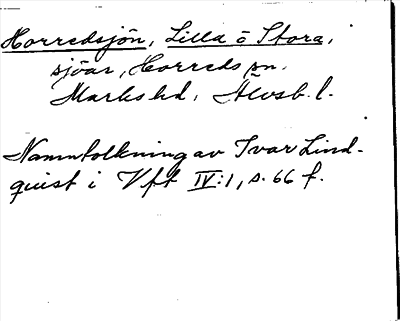 Horredsjön, Lilla o Stora,
sjöar, Horreds sn.
Marks hd, Älvsb. l.
Namntolkning av Ivar Lind-
quist i Vft IV:1, s. 66 f.